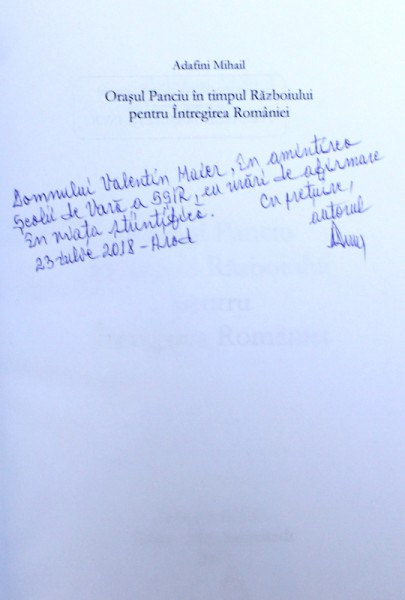 Adafini Mihail
Orașul Panciu în timpul Războiului
pentru Întregirea României
Domnului Valentin Maier, în amintirea
Școlii de Vară a SSIR, cu urări de afirmare
în viața științifică.
Cu prețuire,
23 iulie 2018 - Arad
autorul